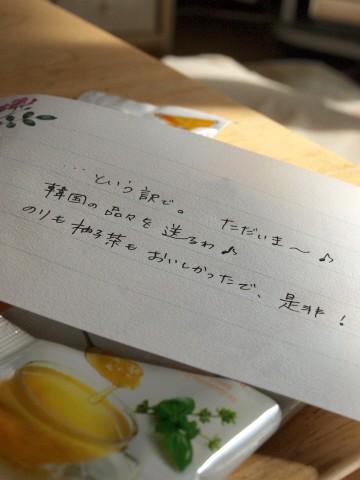 …という訳で。 ただいま～♪
韓国の品々を送るわ♪
のりも柚子茶もおいしかったで、是非！